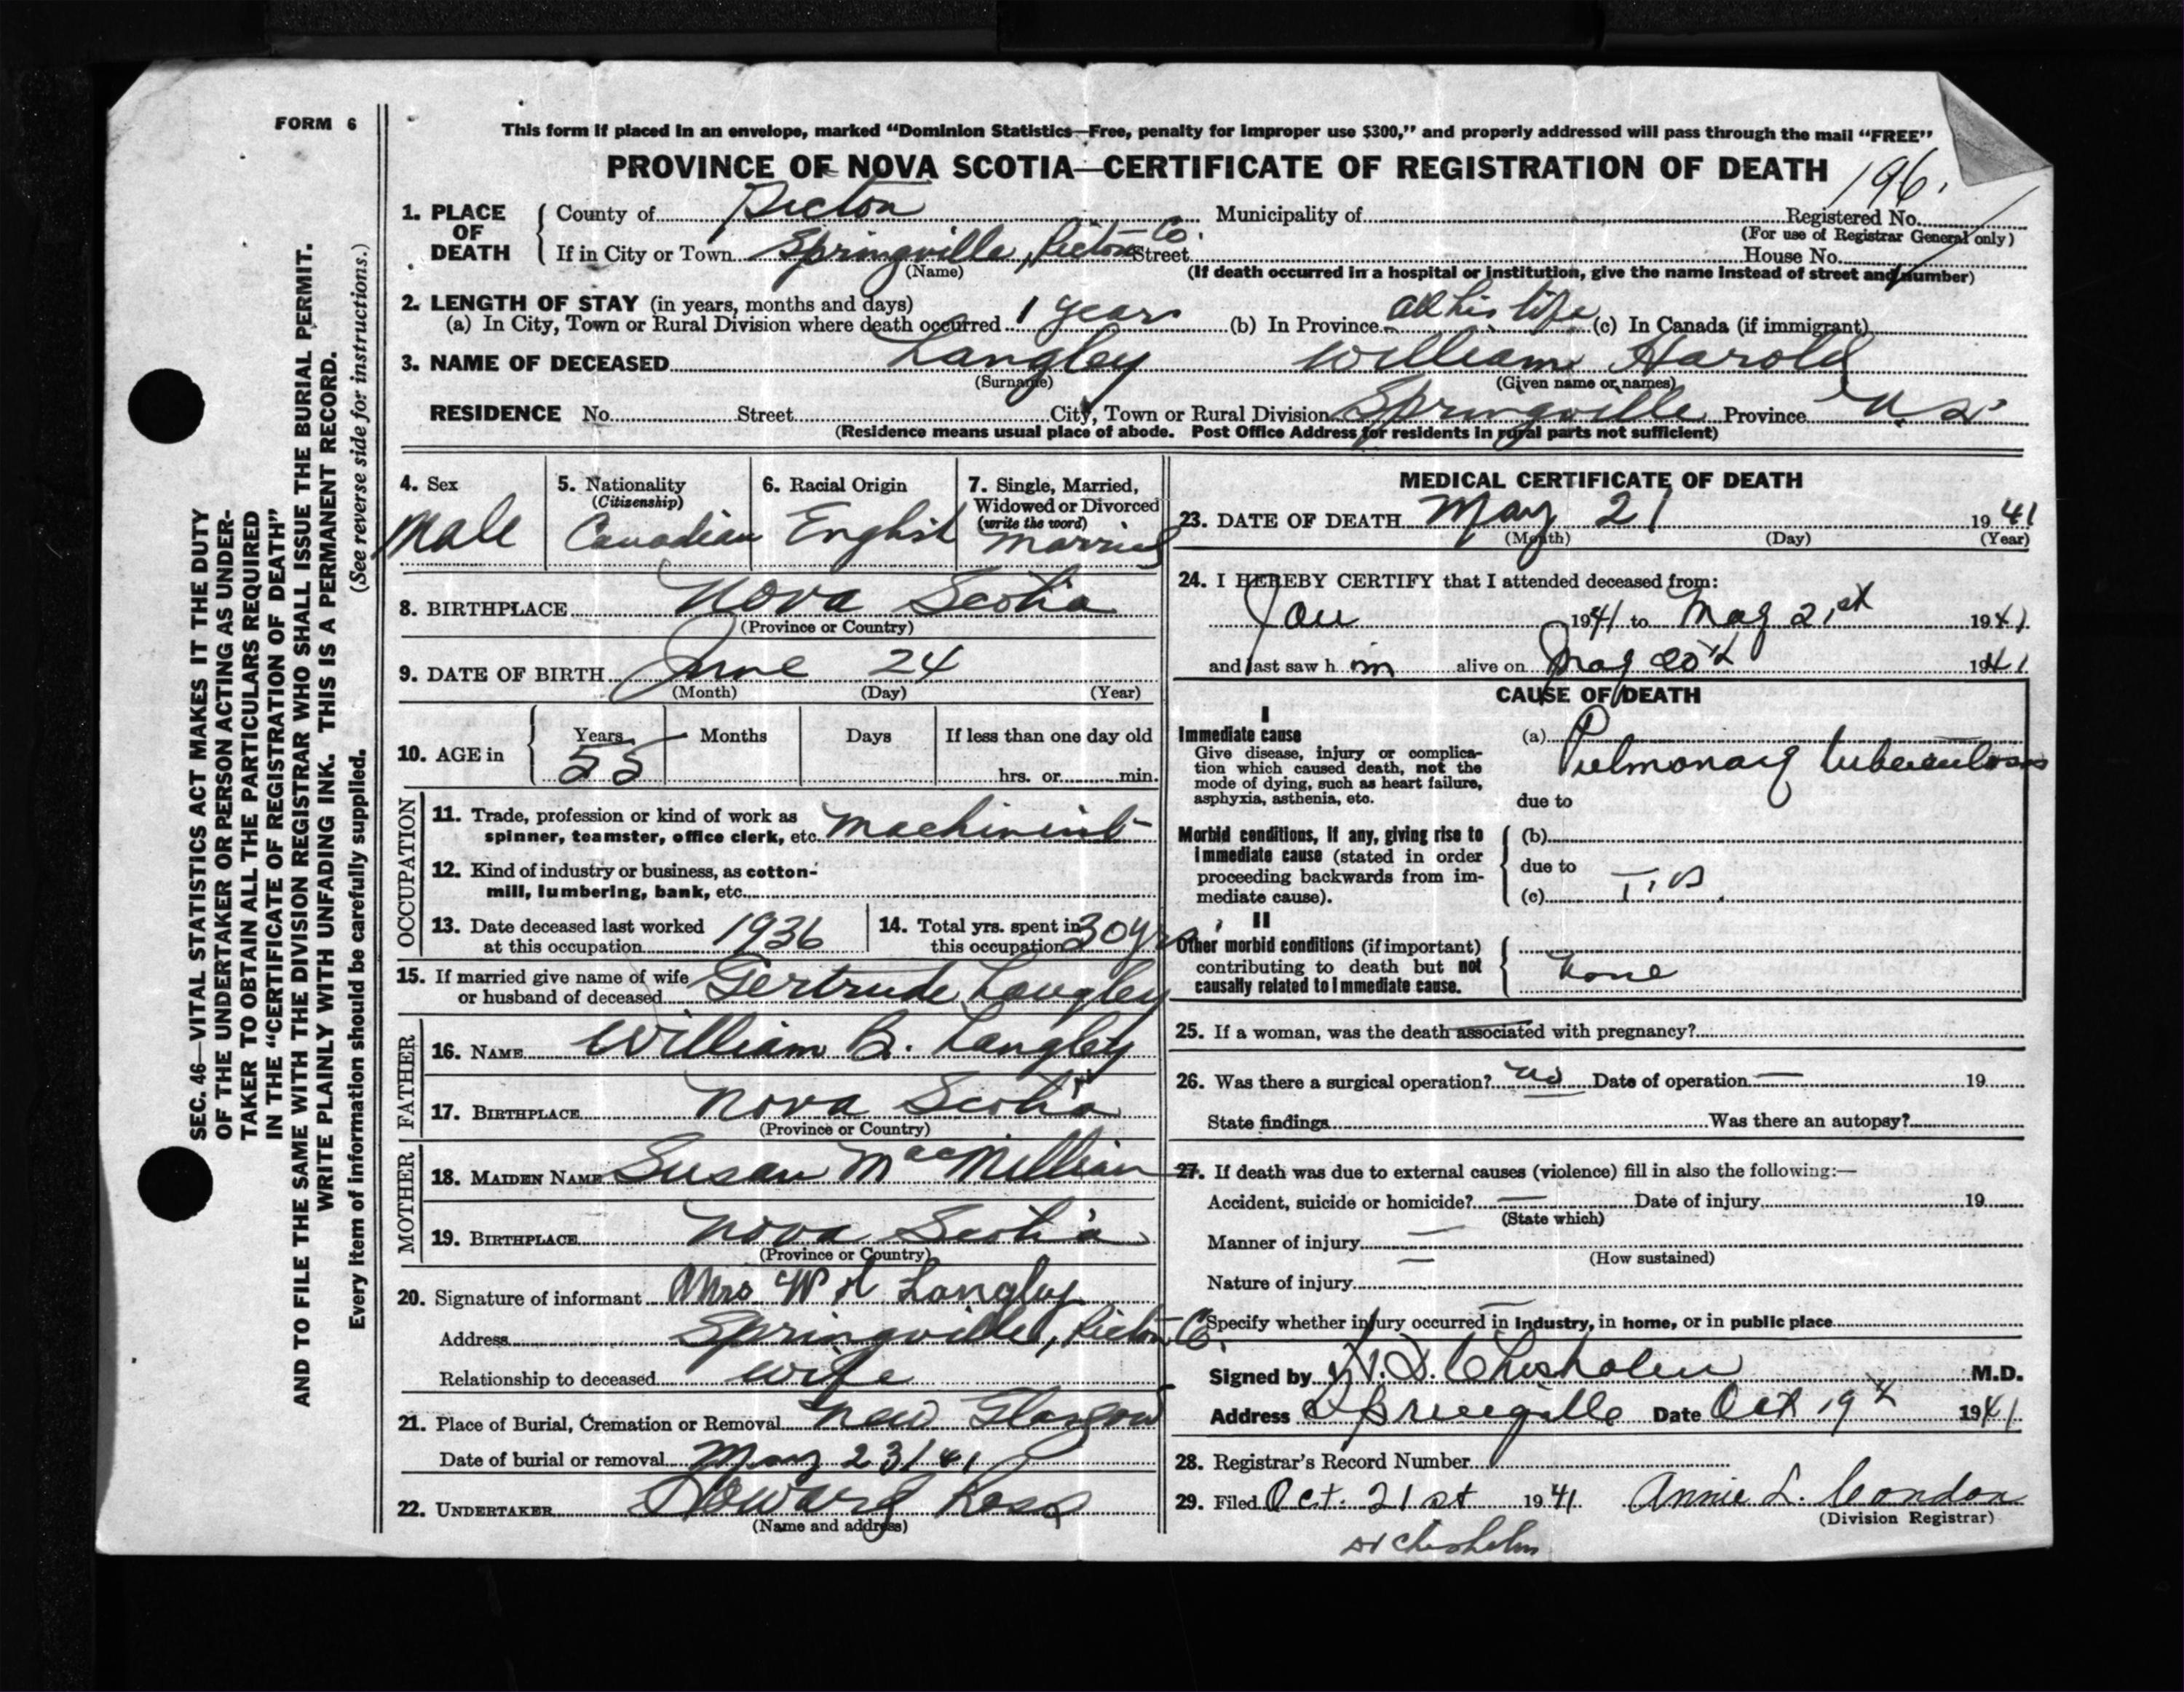 FORM 6
This form if placed in an envelope, marked “Dominion Statistics—Free, penalty for improper use $300,” and properly addressed will pass through the mail “FREE”
PROVINCE OF NOVA SCOTIA—CERTIFICATE OF REGISTRATION OF DEATH
196.
1. PLACE OF DEATH County of Pictou Municipality of Registered No.
(For use of Registrar General only)
If in City or Town Springville, Pictou Co. Street House No.
(Name) (If death occurred in a hospital or institution, give the name instead of street and number)
2. LENGTH OF STAY (in years, months and days)
(a) In City, Town or Rural Division where death occurred 1 years (b) In Province all his life (c) In Canada (if immigrant)
3. NAME OF DECEASED Langley William Harold
(Surname) (Given name or names)
RESIDENCE No. Street City, Town or Rural Division Springville Province N.S.
(Residence means usual place of abode. Post Office Address for residents in rural parts not sufficient)
4. Sex
Male
5. Nationality
(Citizenship)
Canadian
6. Racial Origin
English
7. Single, Married,
Widowed or Divorced
(write the word)
Married
8. BIRTHPLACE Nova Scotia
(Province or Country)
9. DATE OF BIRTH June 24
(Month) (Day) (Year)
10. AGE in Years Months Days If less than one day old
55 hrs. or min.
OCCUPATION
11. Trade, profession or kind of work as
spinner, teamster, office clerk, etc. Machinist
12. Kind of industry or business, as cotton-
mill, lumbering, bank, etc.
13. Date deceased last worked
at this occupation 1936
14. Total yrs. spent in
this occupation 30 yrs
15. If married give name of wife
or husband of deceased Gertrude Langley
FATHER
16. NAME William B. Langley
17. BIRTHPLACE Nova Scotia
(Province or Country)
MOTHER
18. MAIDEN NAME Susan MacMillian
19. BIRTHPLACE Nova Scotia
(Province or Country)
20. Signature of informant Mrs W H Langley
Address Springville, Pictou Co.
Relationship to deceased wife
21. Place of Burial, Cremation or Removal New Glasgow
Date of burial or removal May 23/41
22. UNDERTAKER Howard Ross
(Name and address)
MEDICAL CERTIFICATE OF DEATH
23. DATE OF DEATH May 21 1941
(Month) (Day) (Year)
24. I HEREBY CERTIFY that I attended deceased from:
Jan 1941 to May 21st 1941
and last saw h im alive on May 20th 1941
CAUSE OF DEATH
I
Immediate cause
Give disease, injury or complica-
tion which caused death, not the
mode of dying, such as heart failure,
asphyxia, asthenia, etc.
(a) Pulmonary tuberculosis
due to
Morbid conditions, if any, giving rise to
immediate cause (stated in order
proceeding backwards from im-
mediate cause).
(b)
due to
(c) T.B
II
Other morbid conditions (if important)
contributing to death but not
causally related to immediate cause.
None
25. If a woman, was the death associated with pregnancy?
26. Was there a surgical operation? no Date of operation — 19
State findings Was there an autopsy?
27. If death was due to external causes (violence) fill in also the following:—
Accident, suicide or homicide? — Date of injury 19
(State which)
Manner of injury —
(How sustained)
Nature of injury —
Specify whether injury occurred in industry, in home, or in public place
Signed by Chisholm M.D.
Address Springville Date Oct 19th 1941
28. Registrar's Record Number
29. Filed Oct. 21st 1941 Annie L. Condon
(Division Registrar)
Dr Chisholm
SEC. 46—VITAL STATISTICS ACT MAKES IT THE DUTY
OF THE UNDERTAKER OR PERSON ACTING AS UNDER-
TAKER TO OBTAIN ALL THE PARTICULARS REQUIRED
IN THE “CERTIFICATE OF REGISTRATION OF DEATH”
AND TO FILE THE SAME WITH THE DIVISION REGISTRAR WHO SHALL ISSUE THE BURIAL PERMIT.
WRITE PLAINLY WITH UNFADING INK. THIS IS A PERMANENT RECORD.
Every item of information should be carefully supplied. (See reverse side for instructions.)